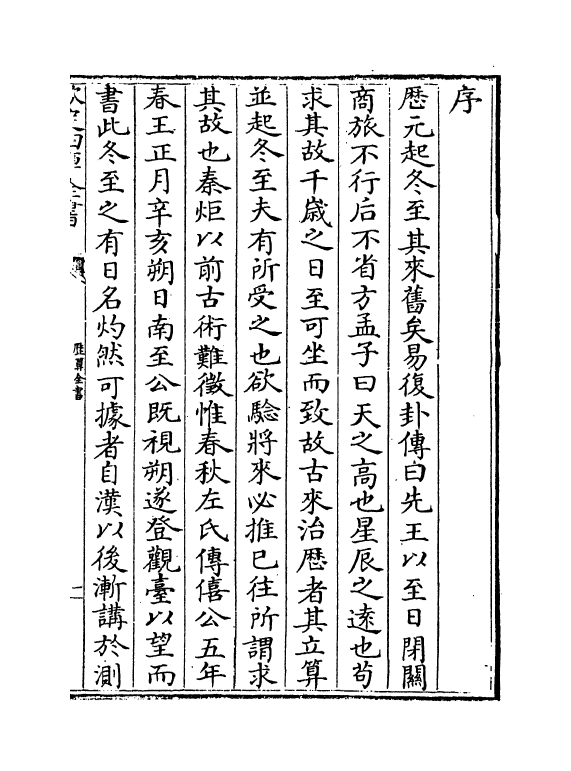 序
歴元起冬至其來舊矣易復卦傳曰先王以至日閉關
商旅不行后不省方孟子曰天之高也星辰之逺也茍
求其故千嵗之日至可坐而致故古來治厯者其立算
並起冬至夫有所受之也欲驗將來必推已往所謂求
其故也秦炬以前古術難徵惟春秋左氏傳僖公五年
春王正月辛亥朔日南至公既視朔遂登觀臺以望而
書此冬至之有日名灼然可據者自漢以後漸講於測
欽定四庫全書
歴算全書
二